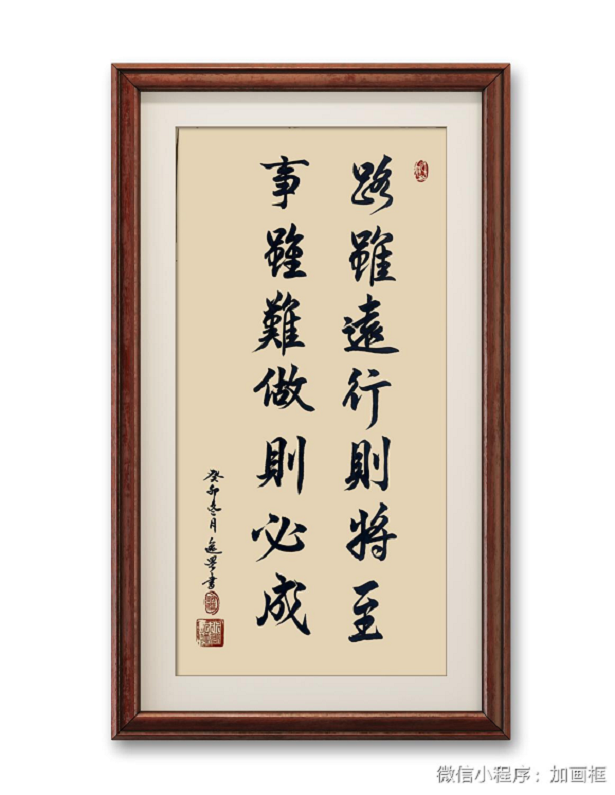 路雖遠行則將至
事雖難做則必成
癸卯冬月逸昇書
微信小程序：加画框